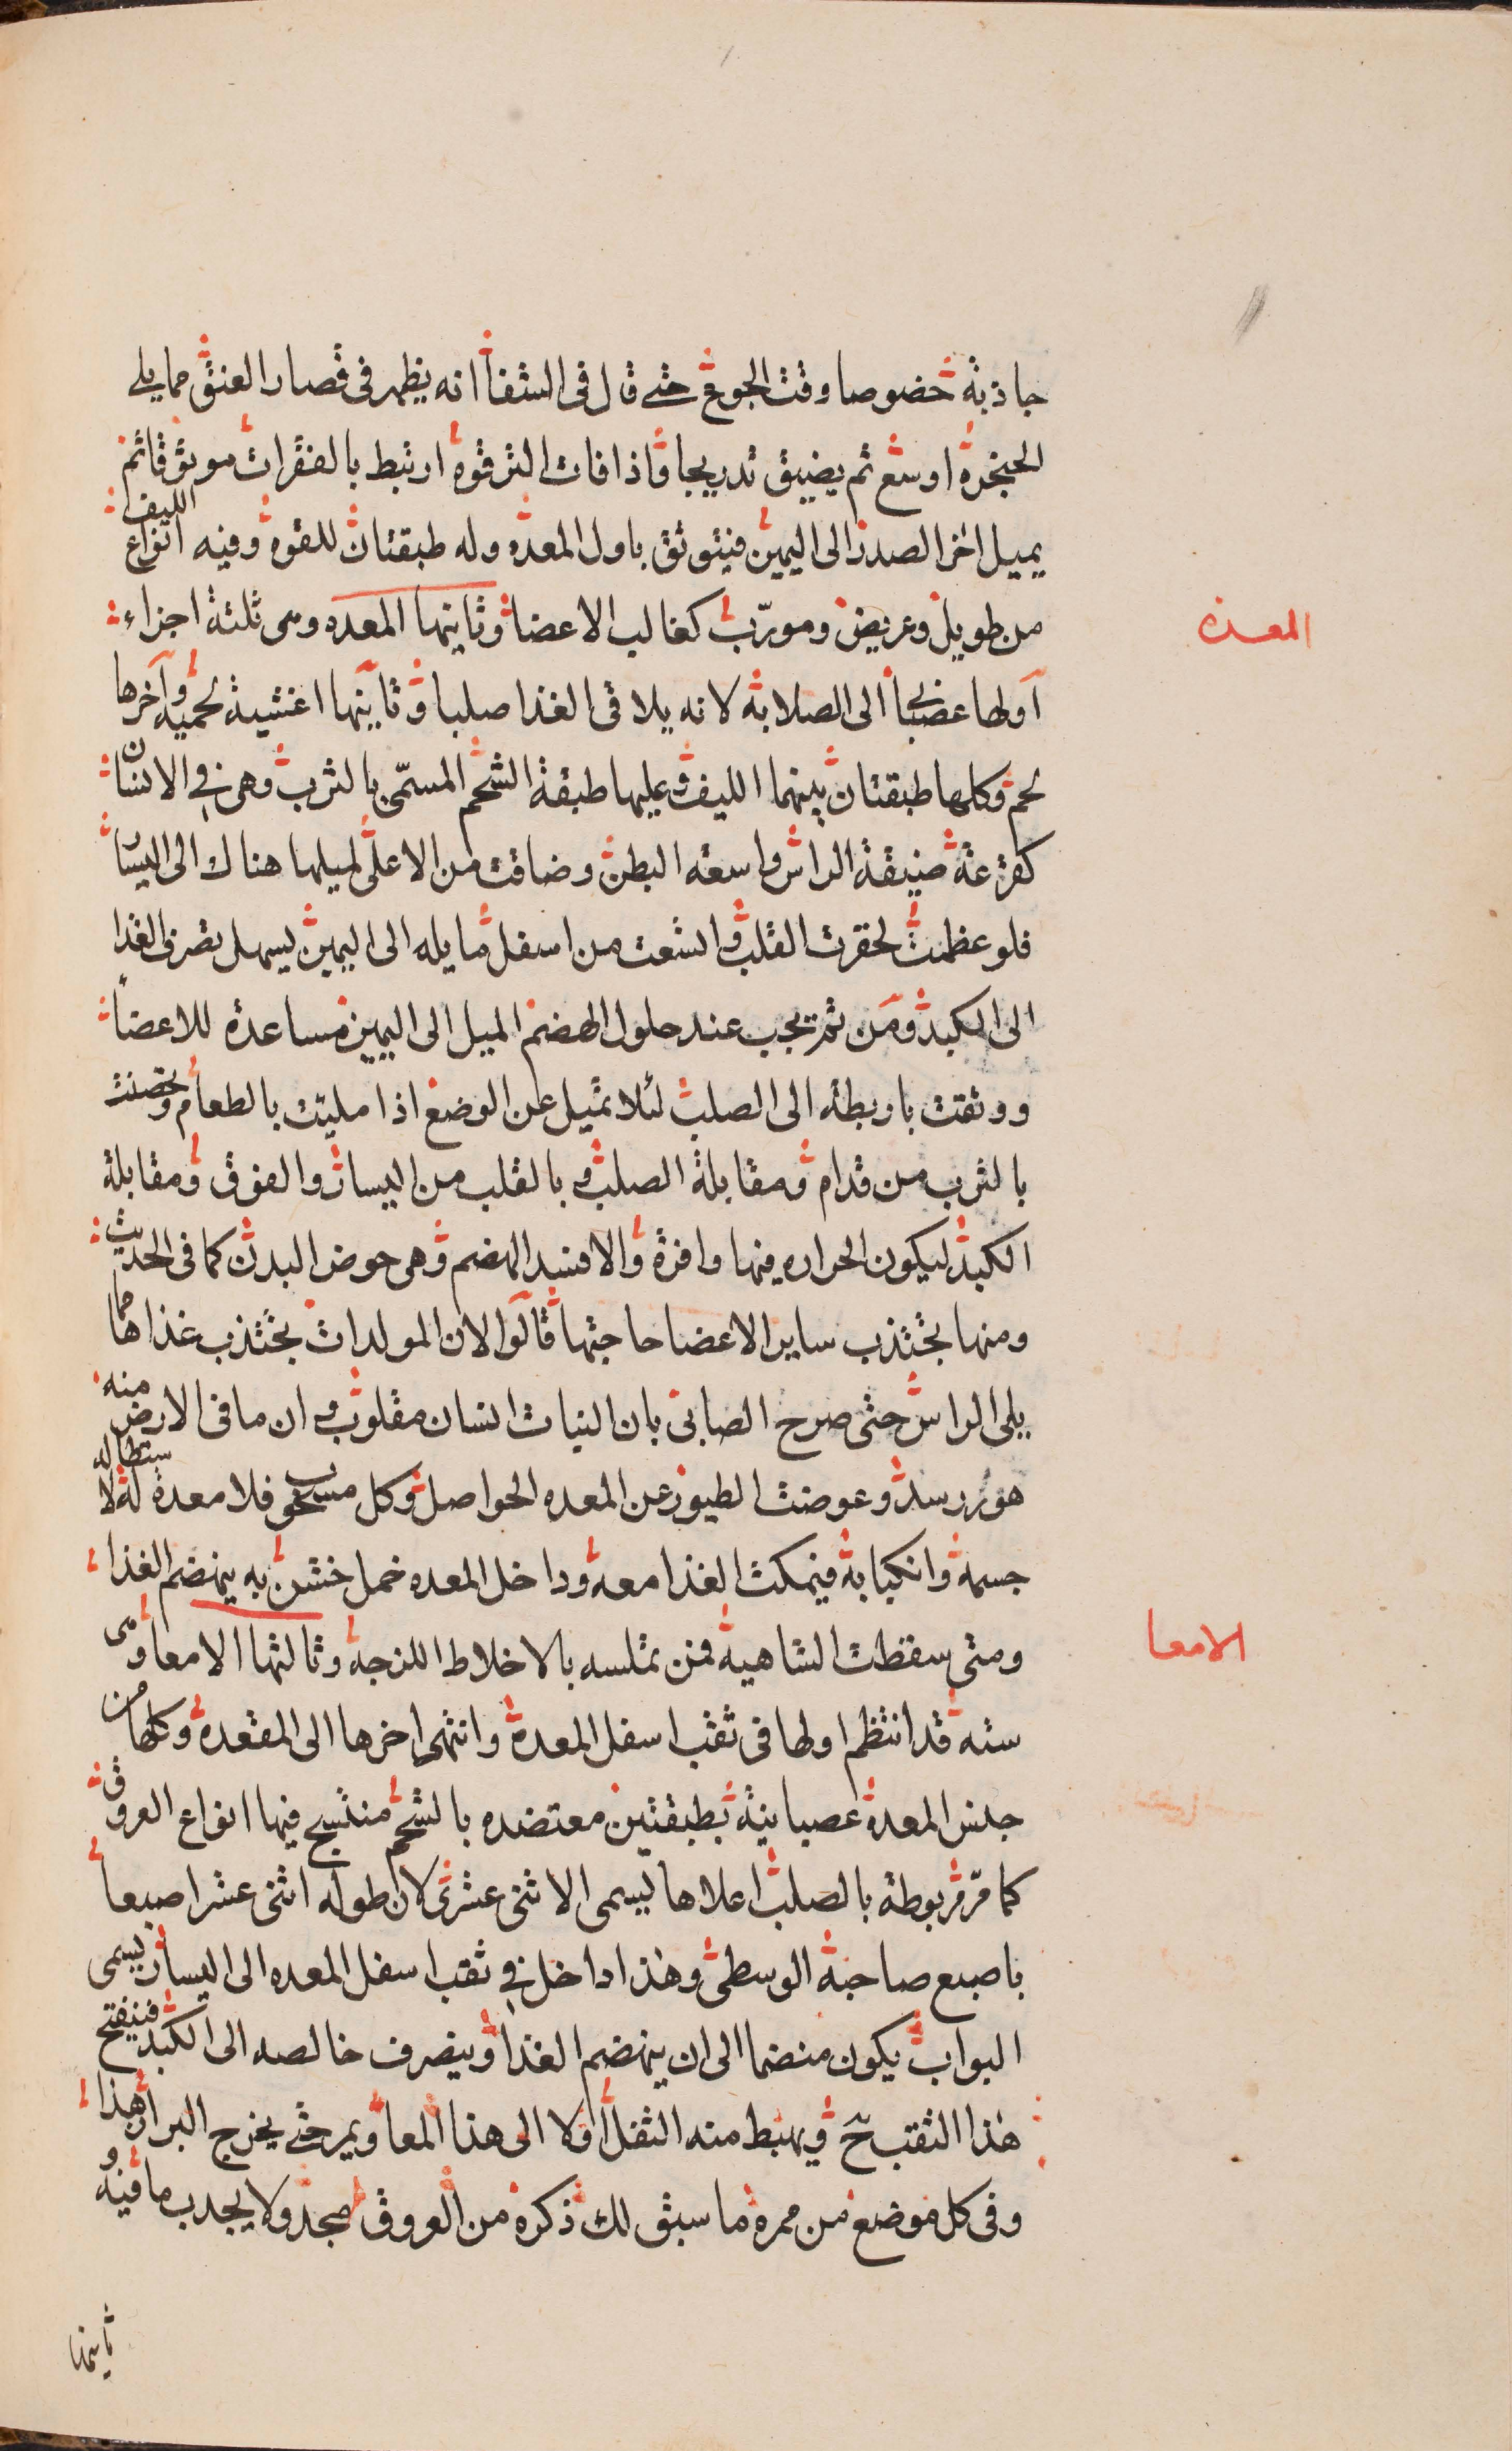 جاذبة خصوصا وقت الجوع حتى قال فى الشفا انه يظهر فى قصار العنق مما يلى
الحنجرة اوسع ثم يضيق تدريجا فاذا فات الترقوة ارتبط بالفقرات موثوقا ثم
يميل اخر الصدر الى اليمين فيتوثق باول المعده وله طبقتان للقوه وفيه انواع الليف
المعده
من طويل وعريض ومورّب كغالب الاعضا وثانيها المعده وهى ثلثة اجزاء
اولها عضبا الى الصلابة لانه يلاقى الغذا صلبا وثانيها اغشية لحمية وآخرها
لحم وكلها طبقتان بينهما الليف وعليها طبقة الشحم المسمّى بالثرب وهى فى الانسان
كقرعة ضيقة الراس واسعه البطن وضاقت من الاعلى لميلها هناك الى اليسار
فلو عظمت لحقرت القلب واتسعت من اسفل مايله الى اليمين ليسهل تصرف الغذا
الى الكبد ومن ثم يجب عند حلول الهضم الميل الى اليمين مساعدة للاعضا
ووثقت باربطه الى الصلب لئلا تميل عن الوضع اذا مليت بالطعام وحصنت
بالثرب من قدام ومقابلة الصلب وبالقلب من اليسار والفوق ومقابلة
الكبد ليكون الحراره فيها وافرة والا فسد الهضم وهى حوض البدن كما فى الحديث
ومنها تجتذب ساير الاعضا حاجتها قالوا لان المولدات تجتذب غذاها مما
يلى الراس حتى صرح الصابى بان النبات انسان مقلوب وان ما فى الارض منه
هو راسه وعوضت الطيور عن المعده الحواصل وكل مسحوب فلا معدة له لاستطاله
جسمه وانكبابه فيمكث الغذا معه وداخل المعده خمل خشن به ينهضم الغذا
الامعا
ومتى سقطت الشاهية فمن تملسه بالاخلاط اللزجة وثالثها الامعا وهى
سته قد انتظم اولها فى ثقب اسفل المعدة وانتهى اخرها الى المقعدة وكلها من
جنس المعدة عصبانية بطبقتين معتضده بالشحم منتسج فيها انواع العروق
كما مرّ مربوطة بالصلب اعلاها ليسمى الاثنى عشرى لان طوله اثنى عشر اصبعا
باصبع صاحبه الوسطى وهذا داخل فى ثقب اسفل المعده الى اليسار يسمى
البواب يكون منضما الى ان ينهضم الغذا وينصرف خالصه الى الكبد فينفتح
هذا الثقب ح ويهبط منه الثفل اولا الى هذا المعا ويمر حتى يخرج البراز وهذا
وفى كل موضع من ممره ما سبق لك ذكره من العروق لا يجدب ما فيه و
ثانيها